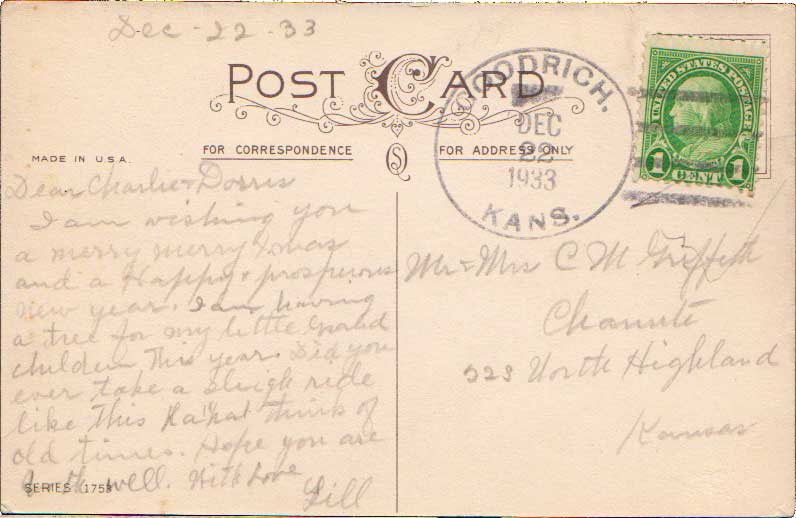 Dec-22-33
POST CARD
FOR CORRESPONDENCE
FOR ADDRESS ONLY
MADE IN U.S.A.
GOODRICH.
DEC
22
1933
KANS.
UNITED STATES POSTAGE
1 CENT 1
Dear Charlie & Dorris
I am wishing you
a merry merry Xmas
and a Happy & prosperous
new year. I am having
a tree for my little Grand
children this year. Did you
ever take a sleigh ride
like this Ha! think of
old times. Hope you are
both well. With Love
Lill
SERIES 175
Mr & Mrs C M Griffith
Chanute
North Highland
Kansas